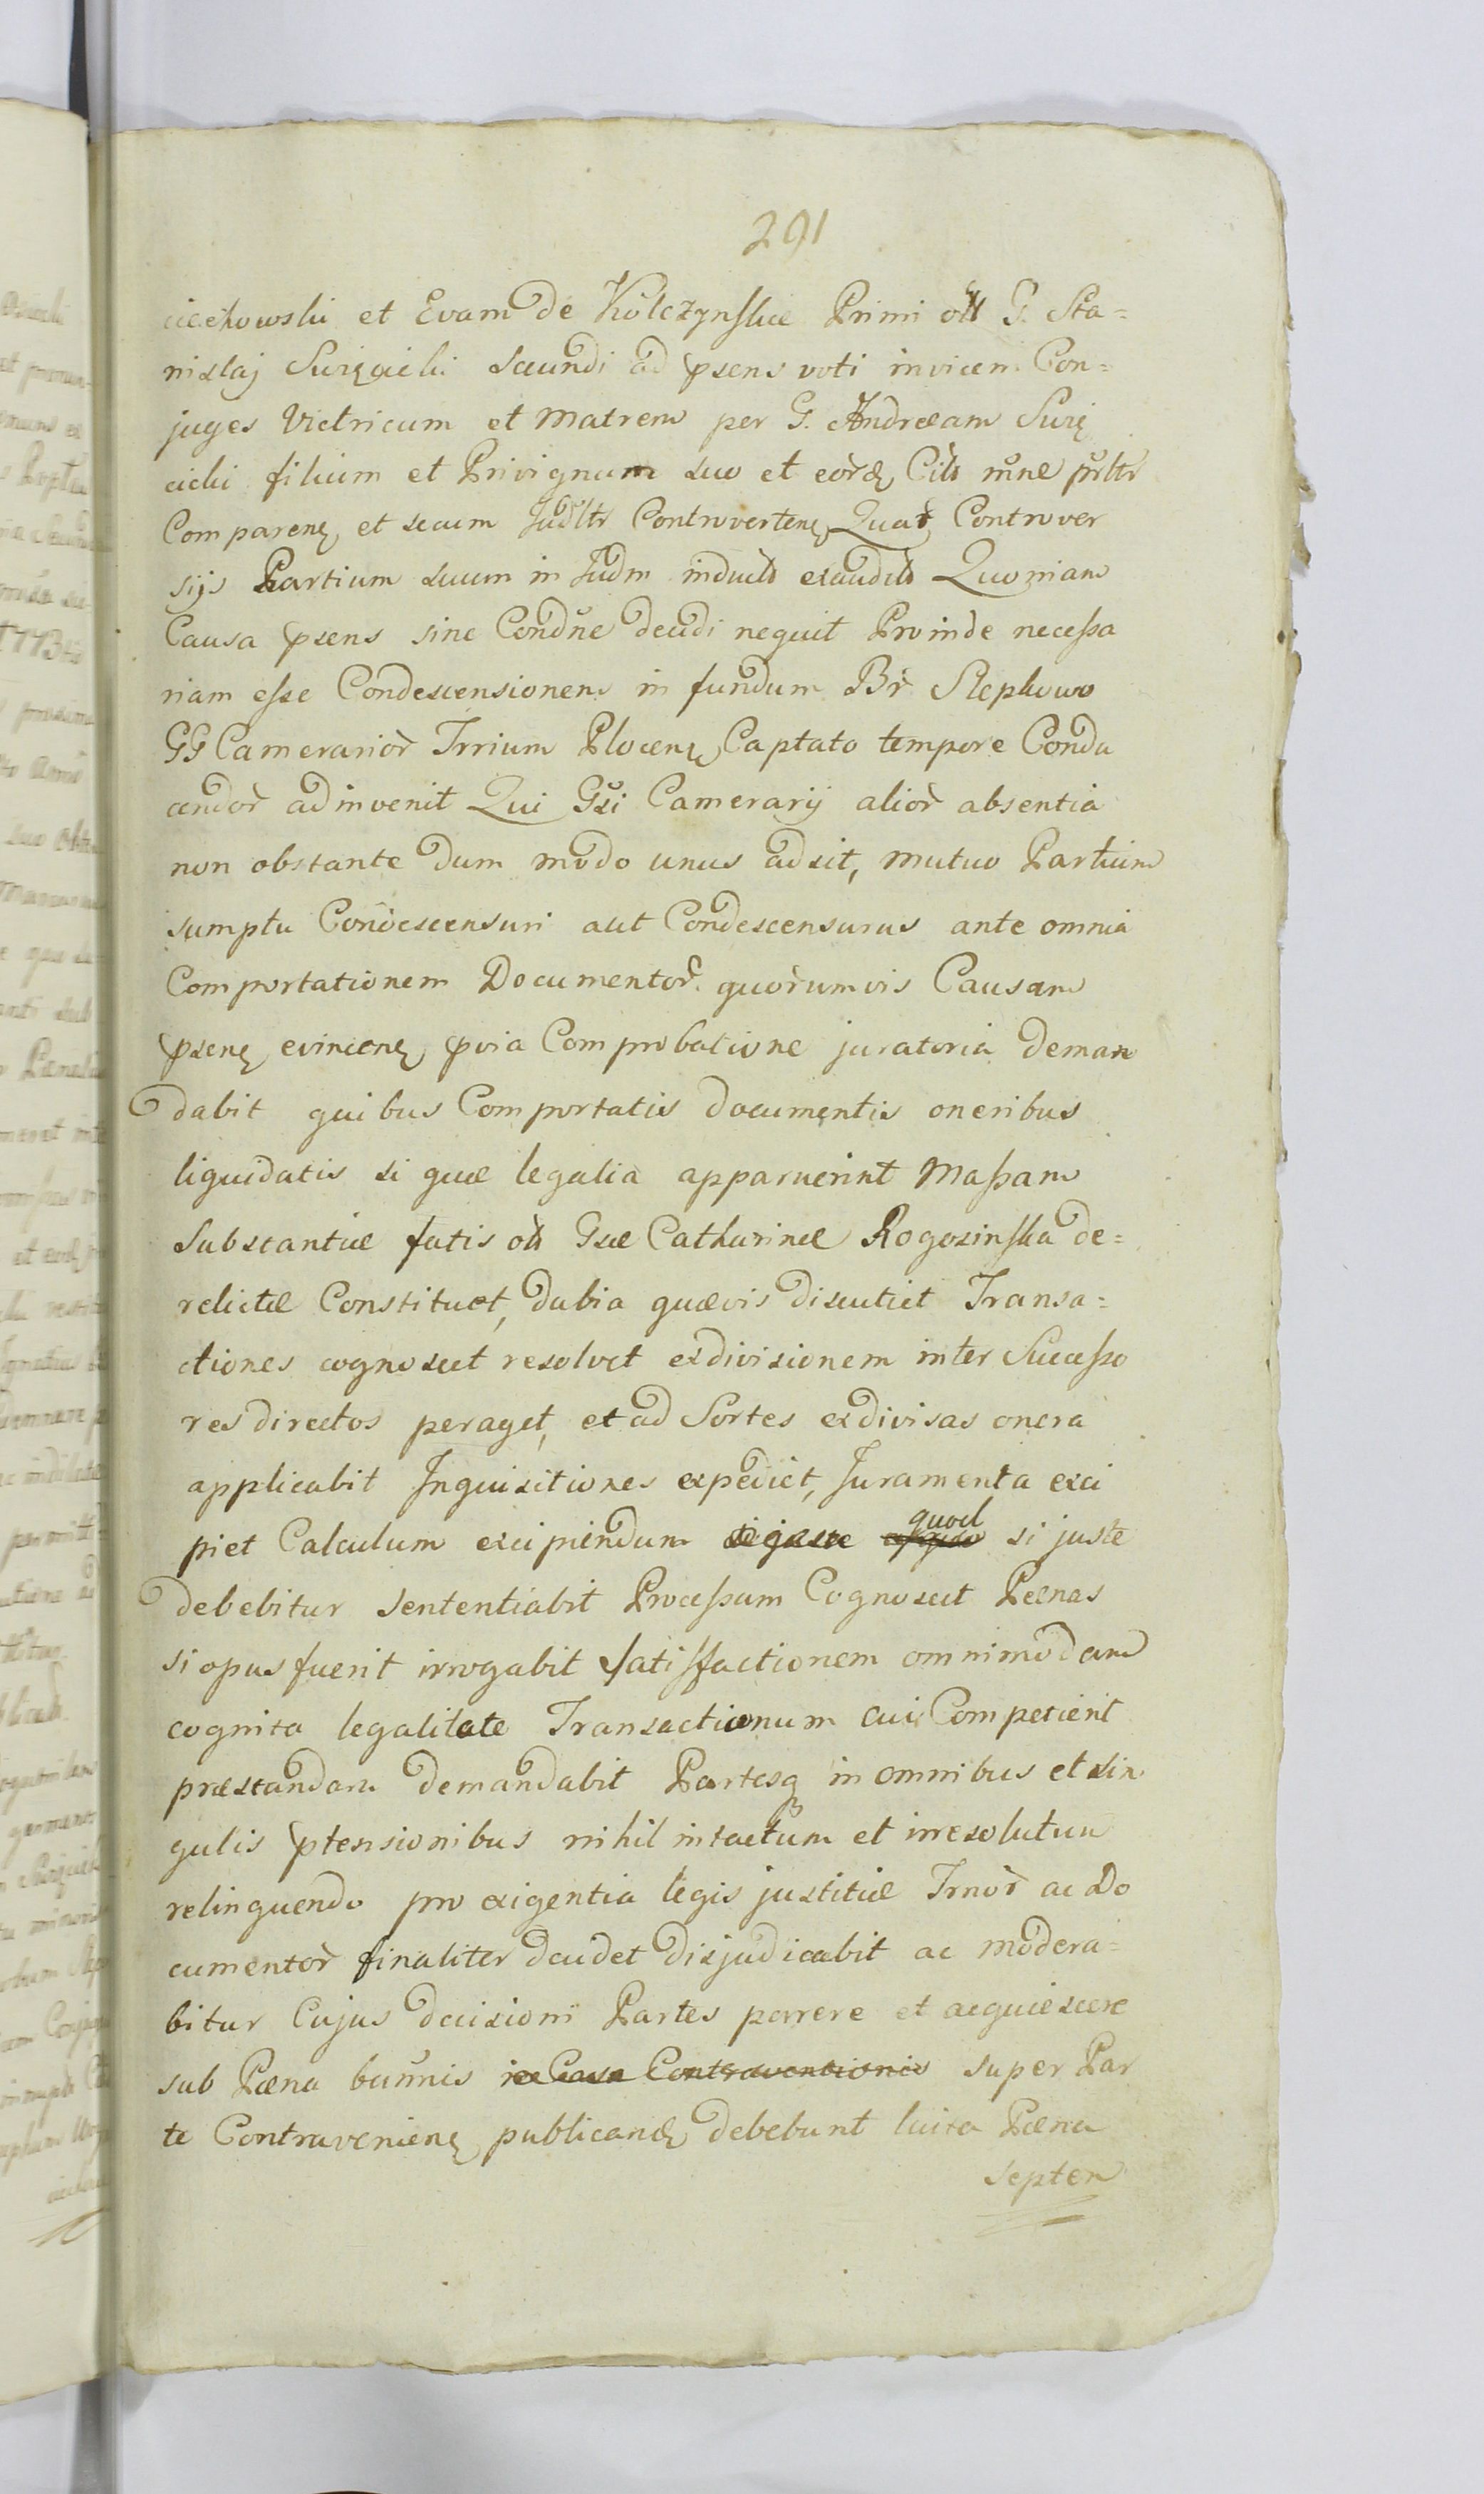 291
ciechowski et Evam de Kolczynskie Primi olt G. Sta=
nislaj Swięcicki Secundi ad psens voti invicem Con=
juges Victricum et Matrem per G. Andreeam Swię
cicki filium et Privignum suo et eord Cils nõne psltr
Comparenę et secum Judltr Controvertenę Quar Controver
sijs Partium suum in Judm inducts exaudits Quoniam
Causa psens sine Condne decidi nequit Proinde necessa
riam esse Condescensionem in fundum Br Slepkowo
GG Camerarior Trrium Plocenę Captato tempore Condu
cendor adinvenit Qui Gsi Camerarij alior absentia
non obstante dum modo unus adsit, mutuo Partium
sumptu Condescensuri aut Condescensurus ante omnia
Comportationem Documentor quorumvis Causam
psenę evincenę pvia Comprobatione juratoria deman
dabit quibus Comportatis documentis oneribus
liquidatis si quæ legalia apparuerint Massam
Substantiæ fatis olt Gsæ Catharinæ Rogozinska de=
relictæ Constituet, dubia quævis discutiet Transa=
ctiones cognoscet resolvet exdivisionem inter Successo
res directos peraget, et ad Sortes exdivisas onera
applicabit Inquisitiones expediet, Juramenta exci
piet Calculum excipiendum quod si juste
debebitur sententiabit Processum Cognoscet Pænas
si opus fuerit irrogabit satisfactionem omnimodam
cognita legalitate Transactionum cui Competierit
præstandam demandabit Partesq in omnibus et sin
gulis ptensionibus nihil intactum et irresolutum
relinquendo pro exigentia legis justitiæ Trnor ac Do
cumentor finaliter decidet disjudicabit ac modera=
bitur Cujus decisioni Partes parrere et acquiescere
sub Pæna bannis in Casu Contraventionis super Par
te Contravenienę publicand debebunt luita Pæna
septen